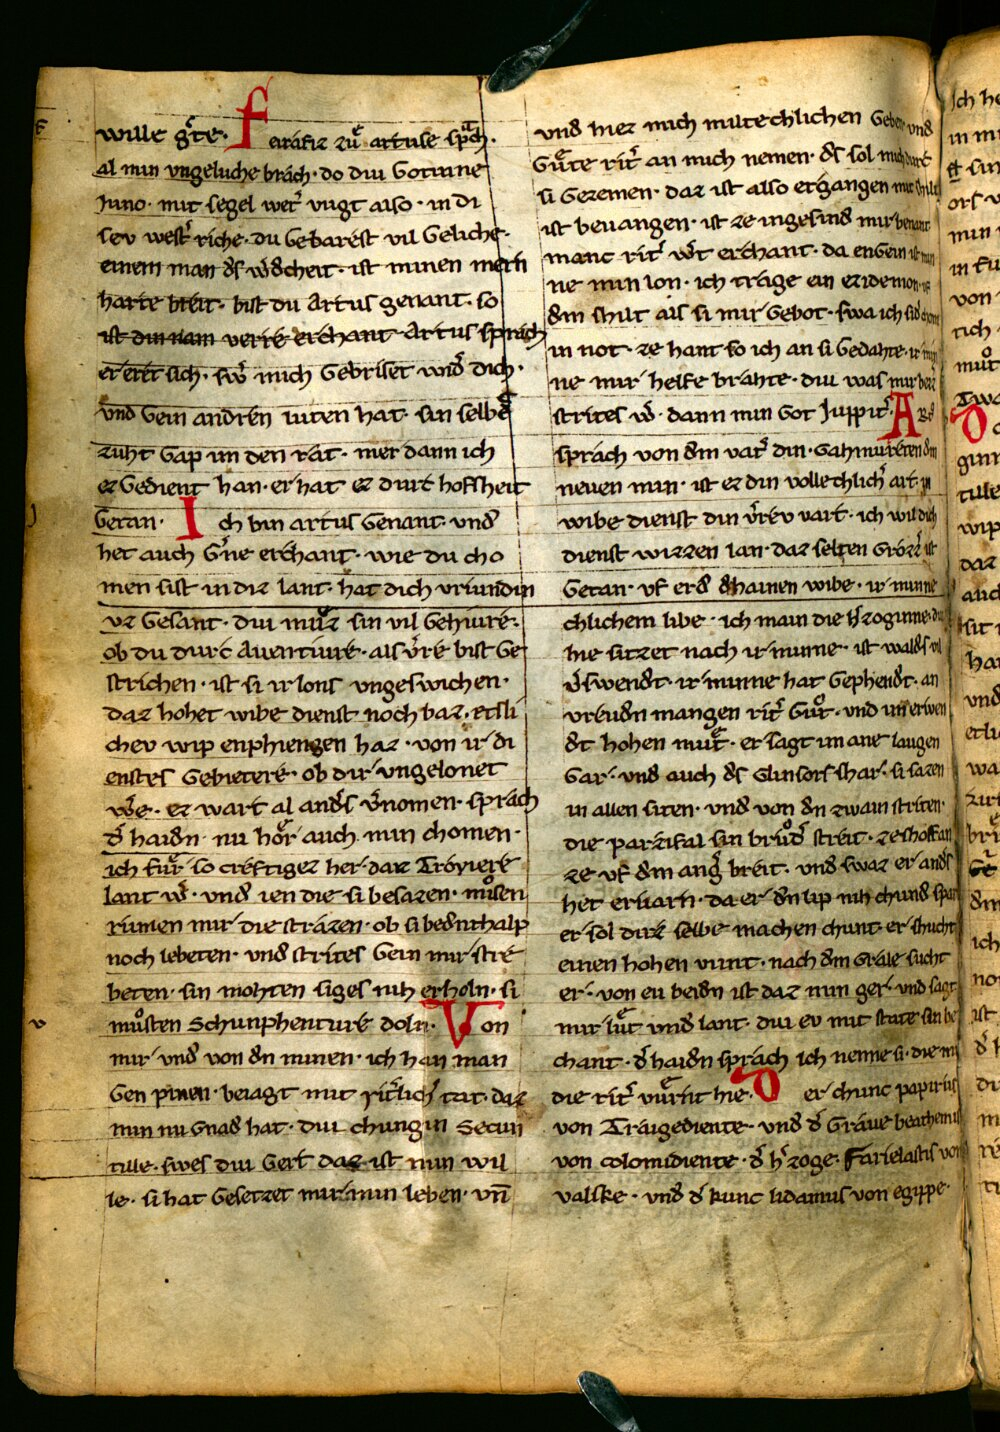 wille gͣte. Ferafiz zuͤ artuse spͣch.
al min vngeluche brach. do diu Gotinne
Iuno. mit segel wetͤ vugt also. in di
sev westͤ riche. du Gebarest vil Geliche.
einem man dͤs wͤdcheit. ist minen mern
harte breit. bist du Artus genant. so
ist din nam verre erchant. Artus sprach
er eret sich. swͤ mich Gebriset wid͛ dich.
vnd Gein andren luten hat. sin selbes
zuht Gap im den rat. mer dann ich
ez Gedient han. er hat ez durc hoffheit
Getan. Ich bin artus Genant. vnd
het auch Gͤne erchant. wie du cho
men sist in diz lant. hat dich vriundin
vz Gesant. diu muͤz sin vil Gehiure.
ob du durc Auentiure. als vͤre bist Ge
strichen. ist si ir lons vngeswichen.
daz hohet wibe dienst noch baz. etsli
chev wip enphiengen haz. von ir di
enstes Gebietere. ob dir vngelonet
wͤe. ez wart al andͤs vͤnomen. sprach
d͛ haidn. nu hoͤr auch min chomen.
ich fuͤr so creftigez her. daz Troyiere
lant wͤ. vnd ien die si besazen. muͦsen
rumen mir die strazen. ob si bednthalp
noch lebeten. vnd strites Gein mir stre
beten. sin mohten siges nih erholn. si
muͦsten Schunphenture doln. Von
mir vnd von dn minen. ich han man
Gen pinen. beiagt mit rit͛lich͛ tat. daz
min nu Gnad hat. diu chungin Secun
tille. swes diu Gert daz ist min wil
le. si hat Gesetzet mir min leben. vn̄
vnd hiez mich miltechlichen Geben. vnd
Guͤte rit͛ an mich nemen. ds sol mich durc
si Gezemen. daz ist also ergangen mit schilt
ist bevangen. ist ze ingesind mir benant
manc rit͛ wͤt erchant. da engein ist min
ne min lon. ich trage ein ezidemon. vf
dm shilt als si mir Gebot. swa ich sid chom
in not. ze hant so ich an si Gedahte. ir min
ne mir helfe brahte. diu was mir bezz
strites wͤ. dann min Got Juppit͛. Artus
sprach von dm vat͛ din. Gahmureten dm
neuen min. ist ez din vollechlich͛ art. in
wibe dienst din vͤrev vart. ich wil dich
dienst wizzen lan. daz selten Grozz͛ ist
Getan. vf erd dhainen wibe. ir minne
chlichem libe. ich main die hͤzoginne. diu
hie sitzet nach ir minne. ist waldͤs vil
vͤswendt. ir minne hat Gephendt. an
vreudn mangen rit͛ Guͦt. vnd im erwen
dt hohen muͤt. er sagt im ane laugen
Gar. vnd auch ds Clinsors shar. si sazen
in allen siten. vnd von dn zwain striten.
die parzifal sin bruͦd͛ streit. ze shoffan
ze vf dm ang͛ breit. vnd swaz er andͤs
het ervarn. da er dn lip nih chund sparn
er sol dirz selbe machen chunt. er shucht
einen hohen vunt. nach dm Grale sucht
er. von eu beidn ist daz min ger. vnd sagt
mir luͤt vnd lant. diu ev mit strite sin be
chant. d͛ haidn sprach ich nenne si. die mir
die rit͛ vuͤrnt hie. Der chunc papirius
von Traigediente. vnd d͛ Graue beathemus
von colomidiente. d͛ hͤzoge. Farielastis von
valske. vnd d͛ kunc lidamus von egippe.